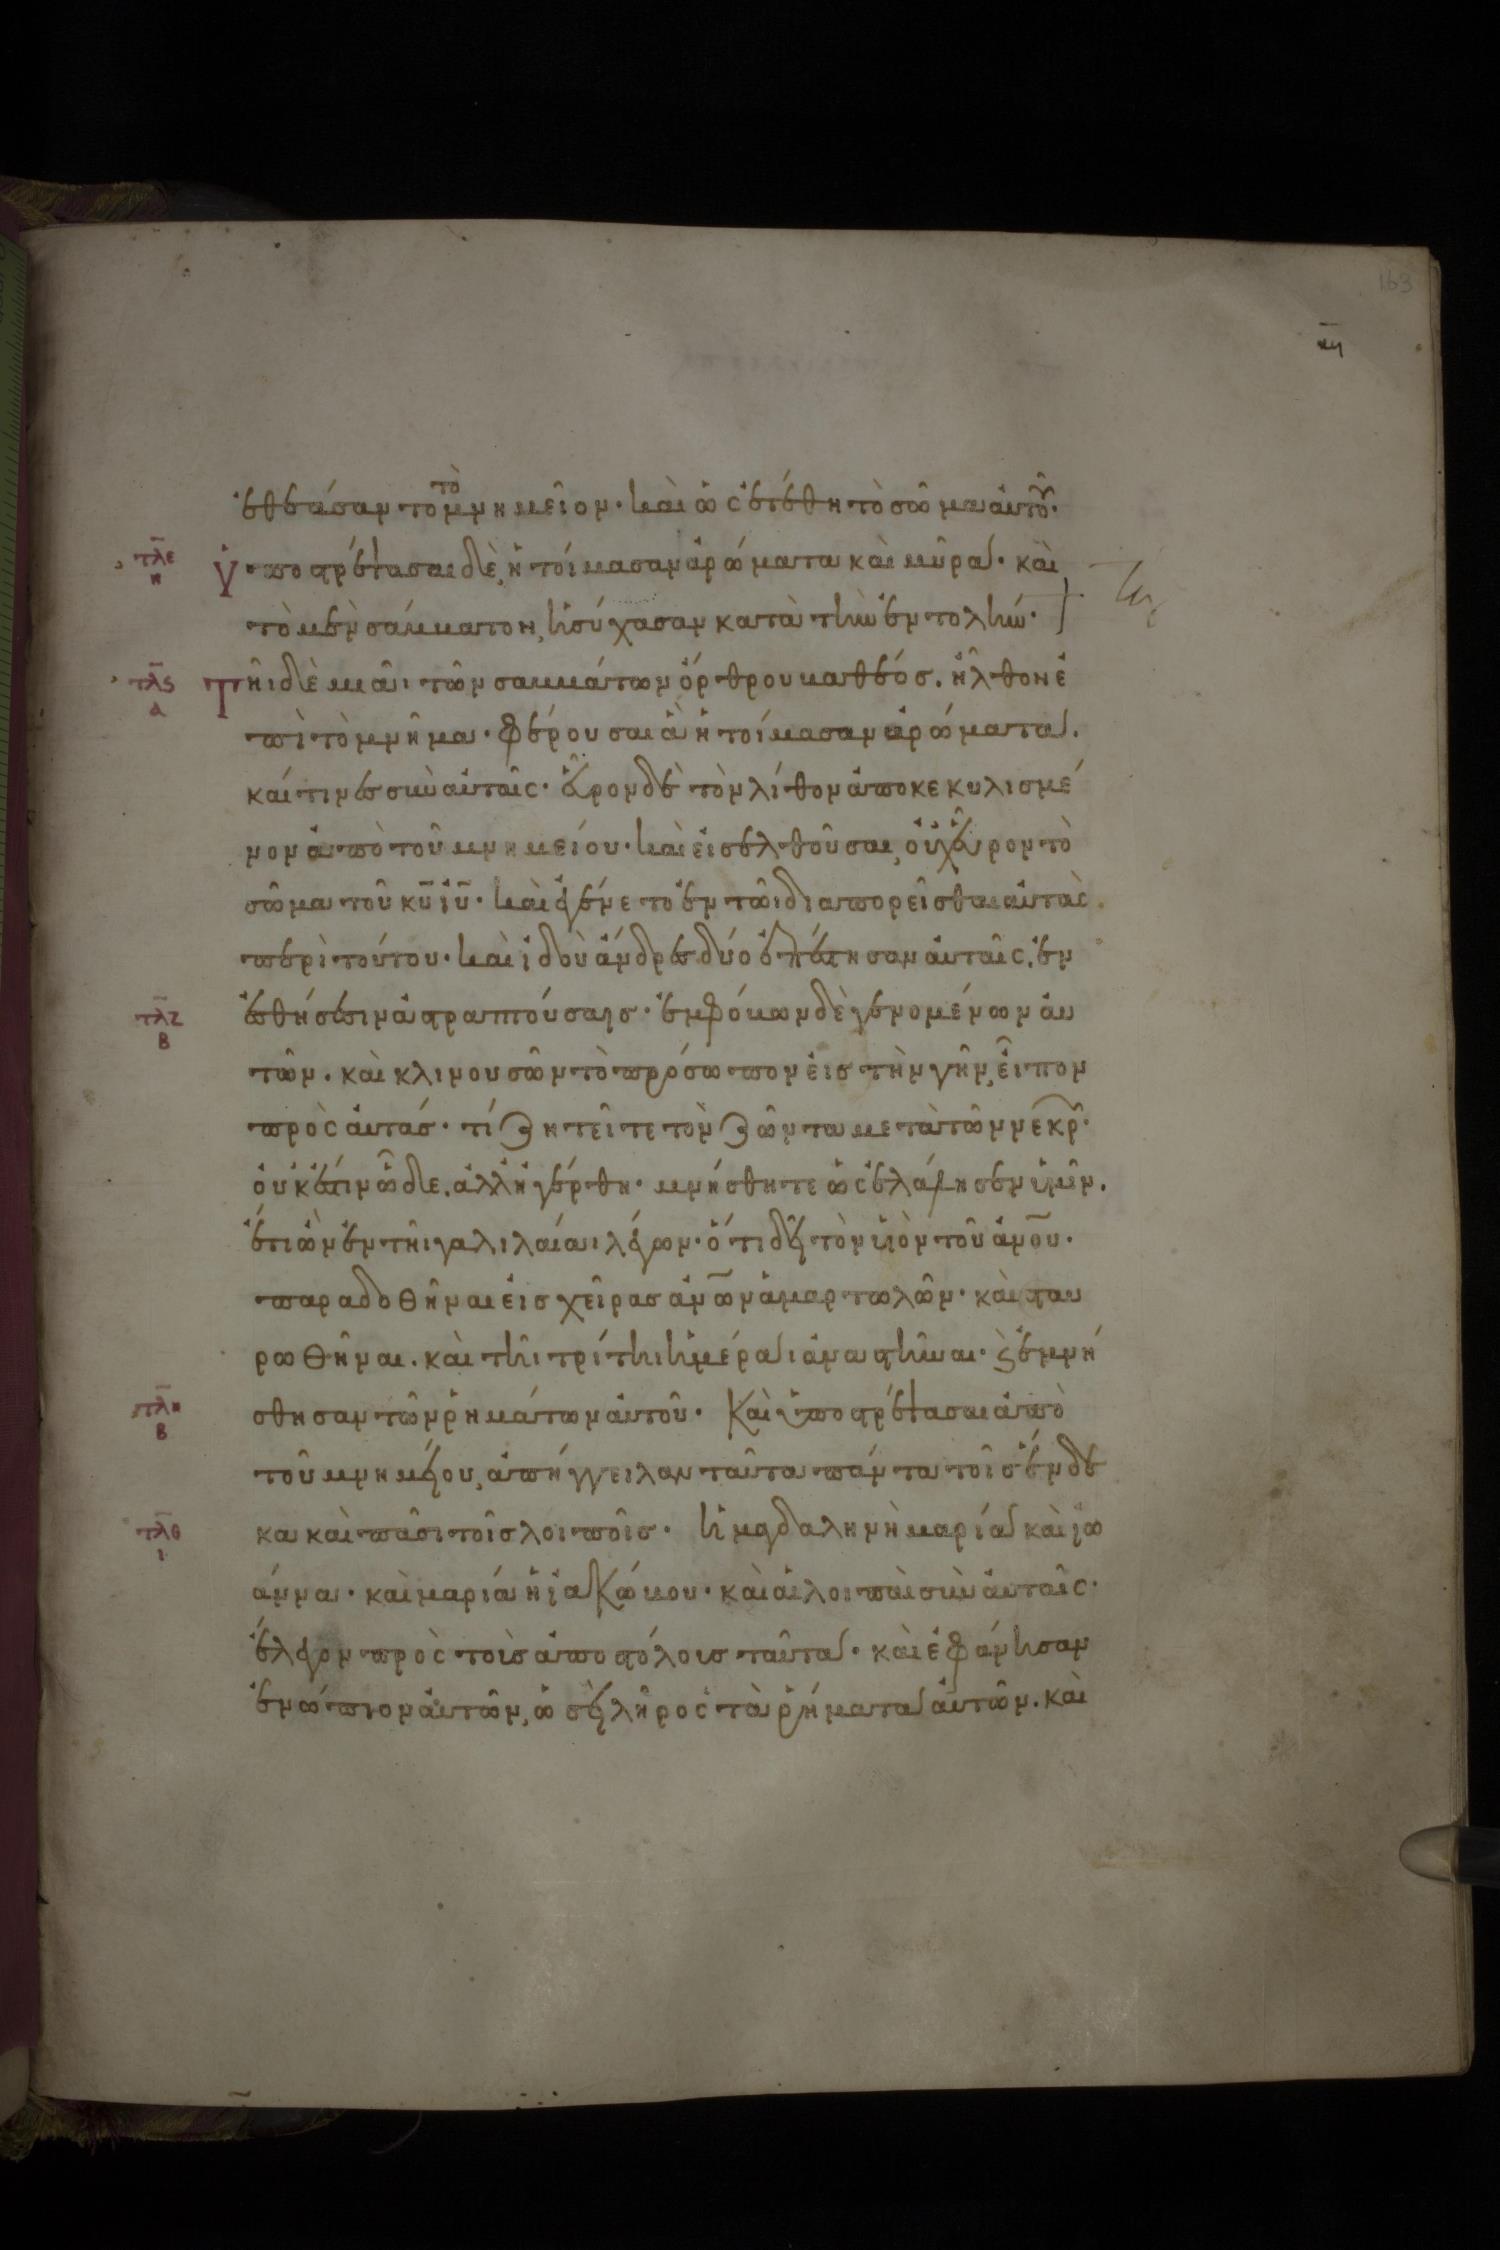 163
κη
τὸ
ἐθεάσαντο μνημεῖον· καὶ ὡς ἐτέθη τὸ σῶμα αὐτοῦ·
τλε
η
Ὑποστρέψασαι δὲ, ἡτοίμασαν ἀρώματα καὶ μύρα· καὶ
τὸ μὲν σάββατον, ἡσύχασαν κατὰ τὴν ἐντολήν·
τλϛ
α
Τῆι δὲ μιᾶι τῶν σαββάτων ὄρθρου βαθέος. ἦλθον ἐ
πὶ τὸ μνῆμα· φέρουσαι ἃ ἡτοίμασαν ἀρώματα.
καί τινες σὺν αὐταῖς· εὗρον δὲ τὸν λίθον ἀποκεκυλισμέ
νον ἀπὸ τοῦ μνημείου· καὶ εἰσελθοῦσαι, οὐχ εὗρον τὸ
σῶμα τοῦ κ̅υ̅ ι̅υ̅· καὶ ἐγένετο ἐν τῶι διαπορεῖσθαι αὐτὰς
περὶ τούτου· καὶ ἰδοὺ ἄνδρες δύο ἐπέστησαν αὐταῖς, ἐν
τλζ
β
ἐσθήσεσιν ἀστραπτούσαις· ἐμφόβων δὲ γενομένων αὐ
τῶν. καὶ κλινουσῶν τὸ πρόσωπον εἰς τὴν γῆν, εἶπον
πρὸς αὐτάς· τί ζητεῖτε τὸν ζῶντα μετὰ τῶν νεκρ·
οὐκ ἔστιν ὧδε. ἀλλ ἠγέρθη· μνήσθητε ὡς ἐλάλησεν ὑμῖν.
ἔτι ὢν ἐν τῆι γαλιλαίαι λέγων· ὅτι δεῖ τὸν υἱὸν τοῦ α̅ν̅ο̅υ̅·
παραδοθῆναι εἰς χεῖρας α̅ν̅ω̅ν̅ ἁμαρτωλῶν· καὶ σταυ
ρωθῆναι. καὶ τῆι τρίτηι ἡμέραι ἀναστῆναι· ϗ ἐμνή
τλη
β
σθησαν τῶν ῥημάτων αὐτοῦ· Καὶ ὑποστρέψασαι ἀπὸ
τοῦ μνημείου, ἀπήγγειλαν ταῦτα πάντα τοῖς ἕνδε
τλθ
ι
κα καὶ πᾶσι τοῖς λοιποῖς· ἡ μαγδαληνὴ μαρία καὶ ἰω
άννα· καὶ μαρία ἡ ἰακώβου· καὶ αἱ λοιπαὶ σὺν αὐταῖς·
ἔλεγον πρὸς τοὺς ἀποστόλους ταῦτα· καὶ ἐφάνησαν
ἐνώπιον αὐτῶν, ὡσεὶ λῆρος τὰ ῥήματα αὐτῶν. καὶ